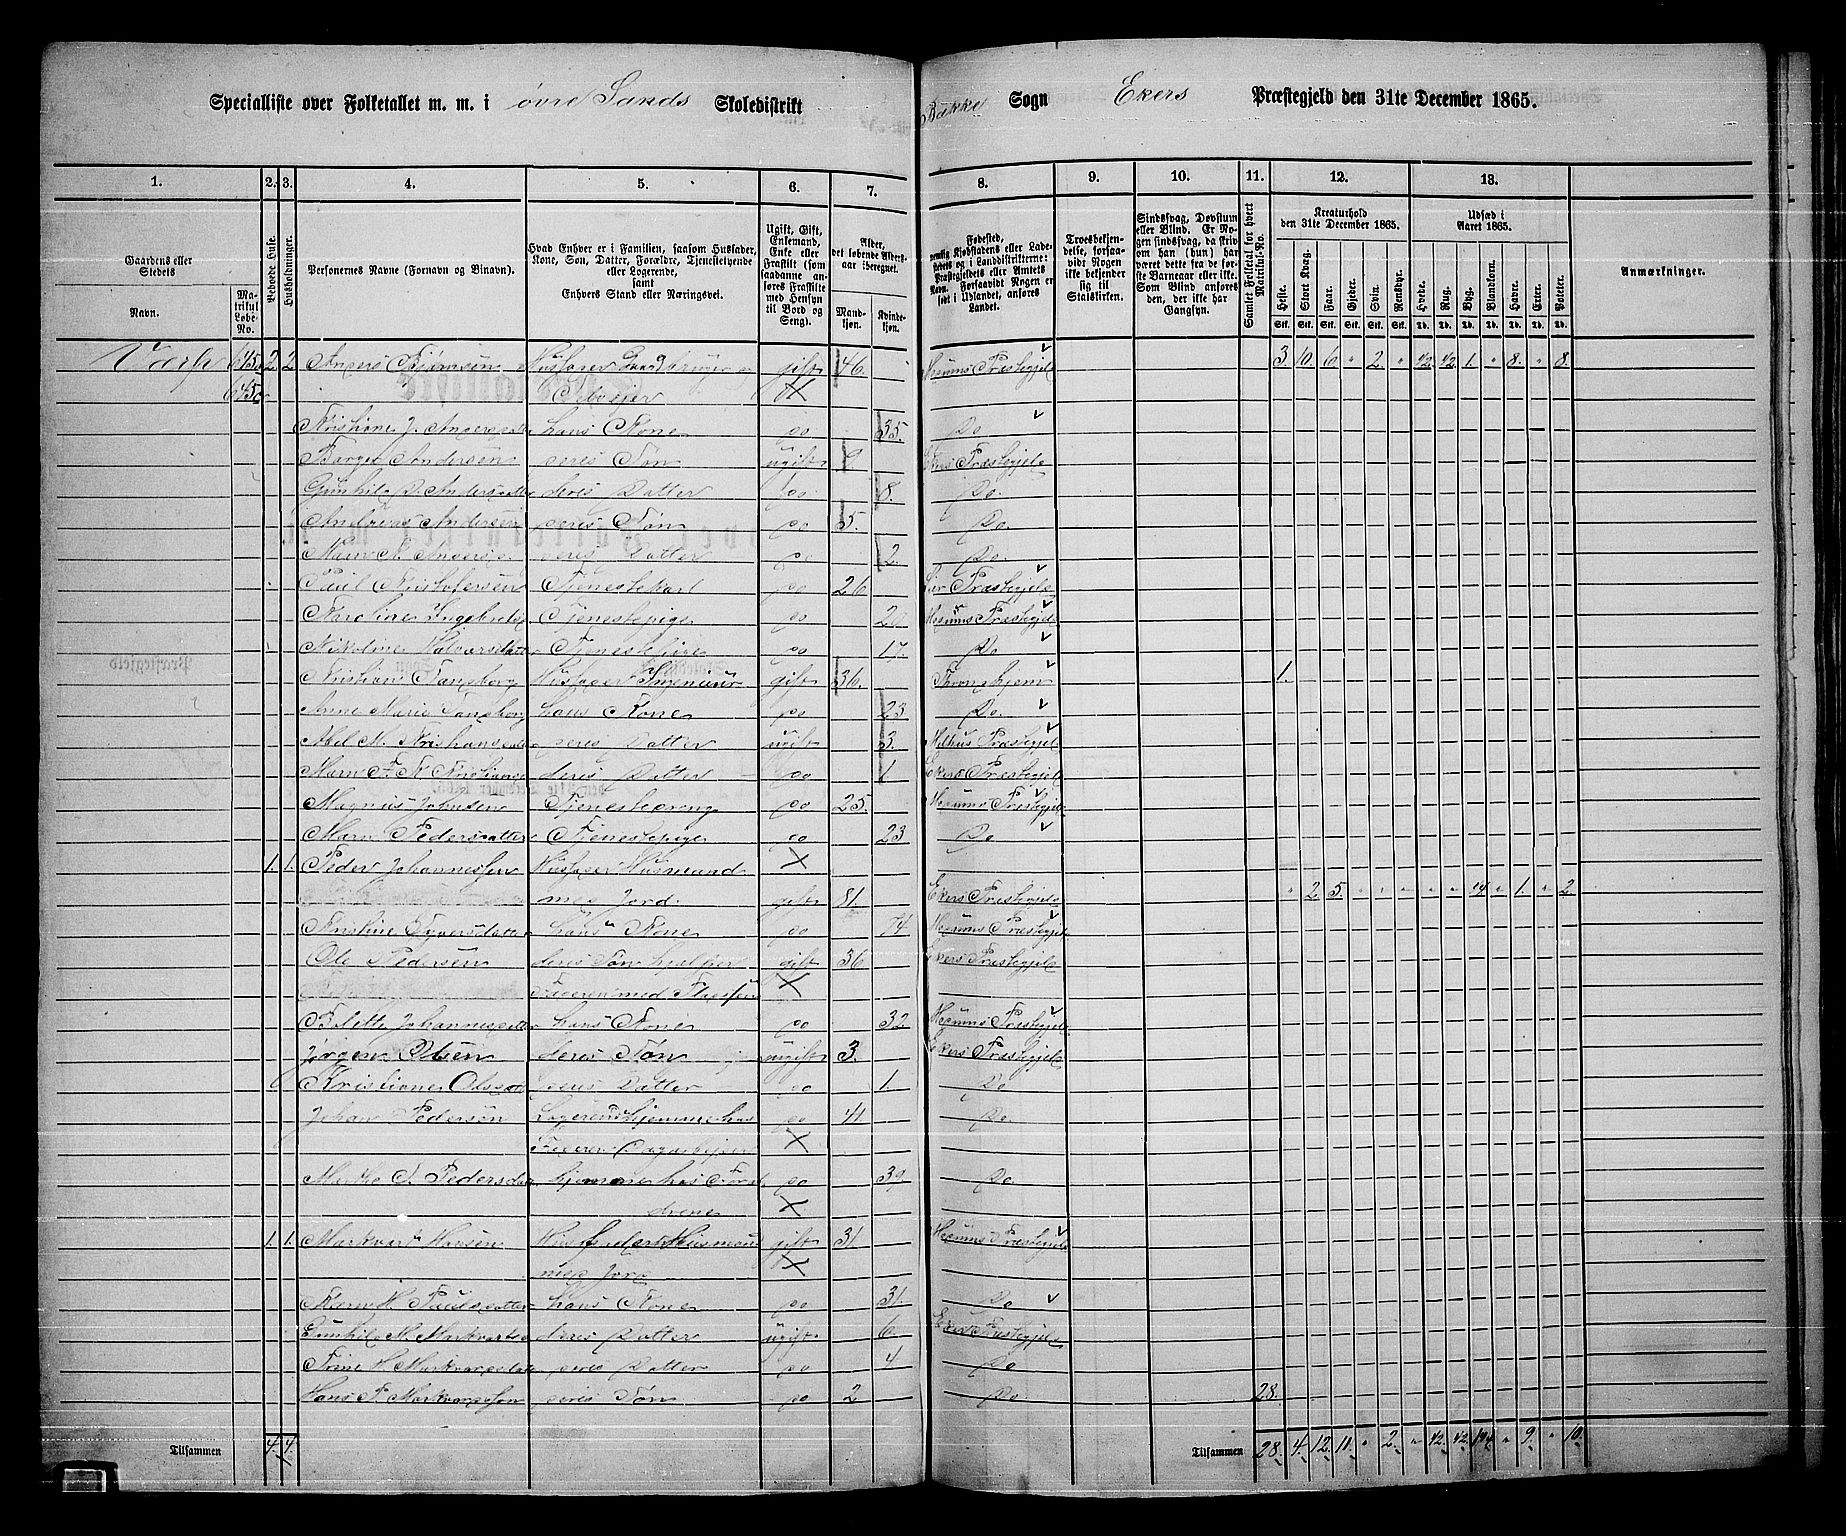 Specialliste over Folketallet m. m. i øvre Sands Skoledistrikt Bakke Sogn Ekers Præstegjeld den 31te December 1865.
1. 2. 3. 4. 5. 6. 7. 8. 9. 10. 11. 12. 13.
Gaardens eller Stedets Navn. Matrikul Løbe-No. Beboede Huse. Husholdninger. Personernes Navne (Fornavn og Binavn).
Hvad Enhver er i Familien, saasom Husfader, Kone, Søn, Datter, Forældre, Tjenestetyende eller Logerende, samt Enhvers Stand eller Næringsvei.
Ugift, Gift, Enkemand, Enke eller Fraskilt (som saadanne anføres Fraskilte med Hensyn til Bord og Seng).
Alder, det løbende Alders-aar iberegnet. Mandkjøn. Kvindekjøn.
Fødested, nemlig Kjøbstadens eller Ladestedets og i Landdistrikterne: Præstegjeldets eller Amtets Navn. Forsaavidt Nogen er født i Udlandet, anføres Landet.
Troesbekjendelse, forsaavidt Nogen ikke bekjender sig til Statskirken.
Sindssvag, Døvstum eller Blind. Er Nogen sindssvag, da skrives om han (hun) har været dette fra de første Barneaar eller ikke. Som Blind anføres den, der ikke har Gangsyn.
Samlet Folketal for hvert Matrikul-No.
Kreaturhold den 31te December 1865. Heste. Stort Kvæg. Faar. Gjeder. Svin. Rensdyr.
Udsæd i Aaret 1865. Hvede. Rug. Byg. Blandkorn. Havre. Erter. Poteter.
Anmærkninger.
645b 2 2 Anders Bjørnsen Husfader Gaardbruger og gift 46. Modums Præstegjeld 3. 10. 6 " 2. " 1/2 1/2 1. " 8. " 8.
645c Selveier
Kristiane J. Andersdatter hans Kone do 35. Do
Borger Andersen deres Søn ugift 9 Ekers Præstegjeld
Gunhild D. Andersdatter deres Datter do 8. Do.
Andreas Andersen deres Søn do 5. Do.
Maren A. Andersd. deres Datter do 2. Do.
Paul Kristofersen Tjenestekarl do 26 Lier Præstegjeld
Karoline Ingebretsd Tjenestepige do Modums Præstegjeld
Nikoline Halvorsdatter Tjenestepige do 17. Do
Kristian Tangborg Husfader Ingeniør gift 36. Throndhjem 1.
Anne Marie Tangborg hans Kone do 23 Do
Abel M. Kristiansdatter deres Datter ugift 3. Melhus Præstegjeld
Maren F. K. Kristiansd deres Datter do 1 Ekers Præstegjeld
Magnus Johnsen Tjenestedreng do 25. Modums Præstegjeld
Maren Pedersdatter Tjenestepige do 23 Do
1. 1. Peder Johannessen Husfader Husmand
med Jord. gift 81. Ekers Præstegjeld " 2. 5. " " " " " 1/4 " 1. " 2.
Kristine Syversdatter hans Kone do 74 Modums Præstegjeld
Ole Pedersen deres Søn hjelper gift 36 Ekers Præstegjeld
Faderen med
Belette Johannesdatter hans Kone do 32 Modums Præstegjeld
Jørgen Olsen deres Søn ugift 3. Ekers Præstegjeld
Kristiane Olsdat deres Datter do 1. Do
Johan Pedersen Logerende hjemme hos do 41 Do.
Faderen Dagarbeider
Marthe Pedersdat hjemme hos Foræl- do 39 Do
drene
1. 1. Markvart Hansen Husfader Husmand gift 31 Modums Præstegjeld
med Jord
Karen H. Paulsdatter hans Kone do 31. Do
Gunhild M. Markvartsd deres Datter ugift 6 Ekers Præstegjeld
Trine H. Markvardsdatt deres Datter do 4 Do
Hans P. Markvardsen deres Søn do 2 Do 28.
Tilsammen 4. 4. Tilsammen 28. 4. 12. 11. " 2. " 1/2 1/2 1 1/4 " 9. " 10.